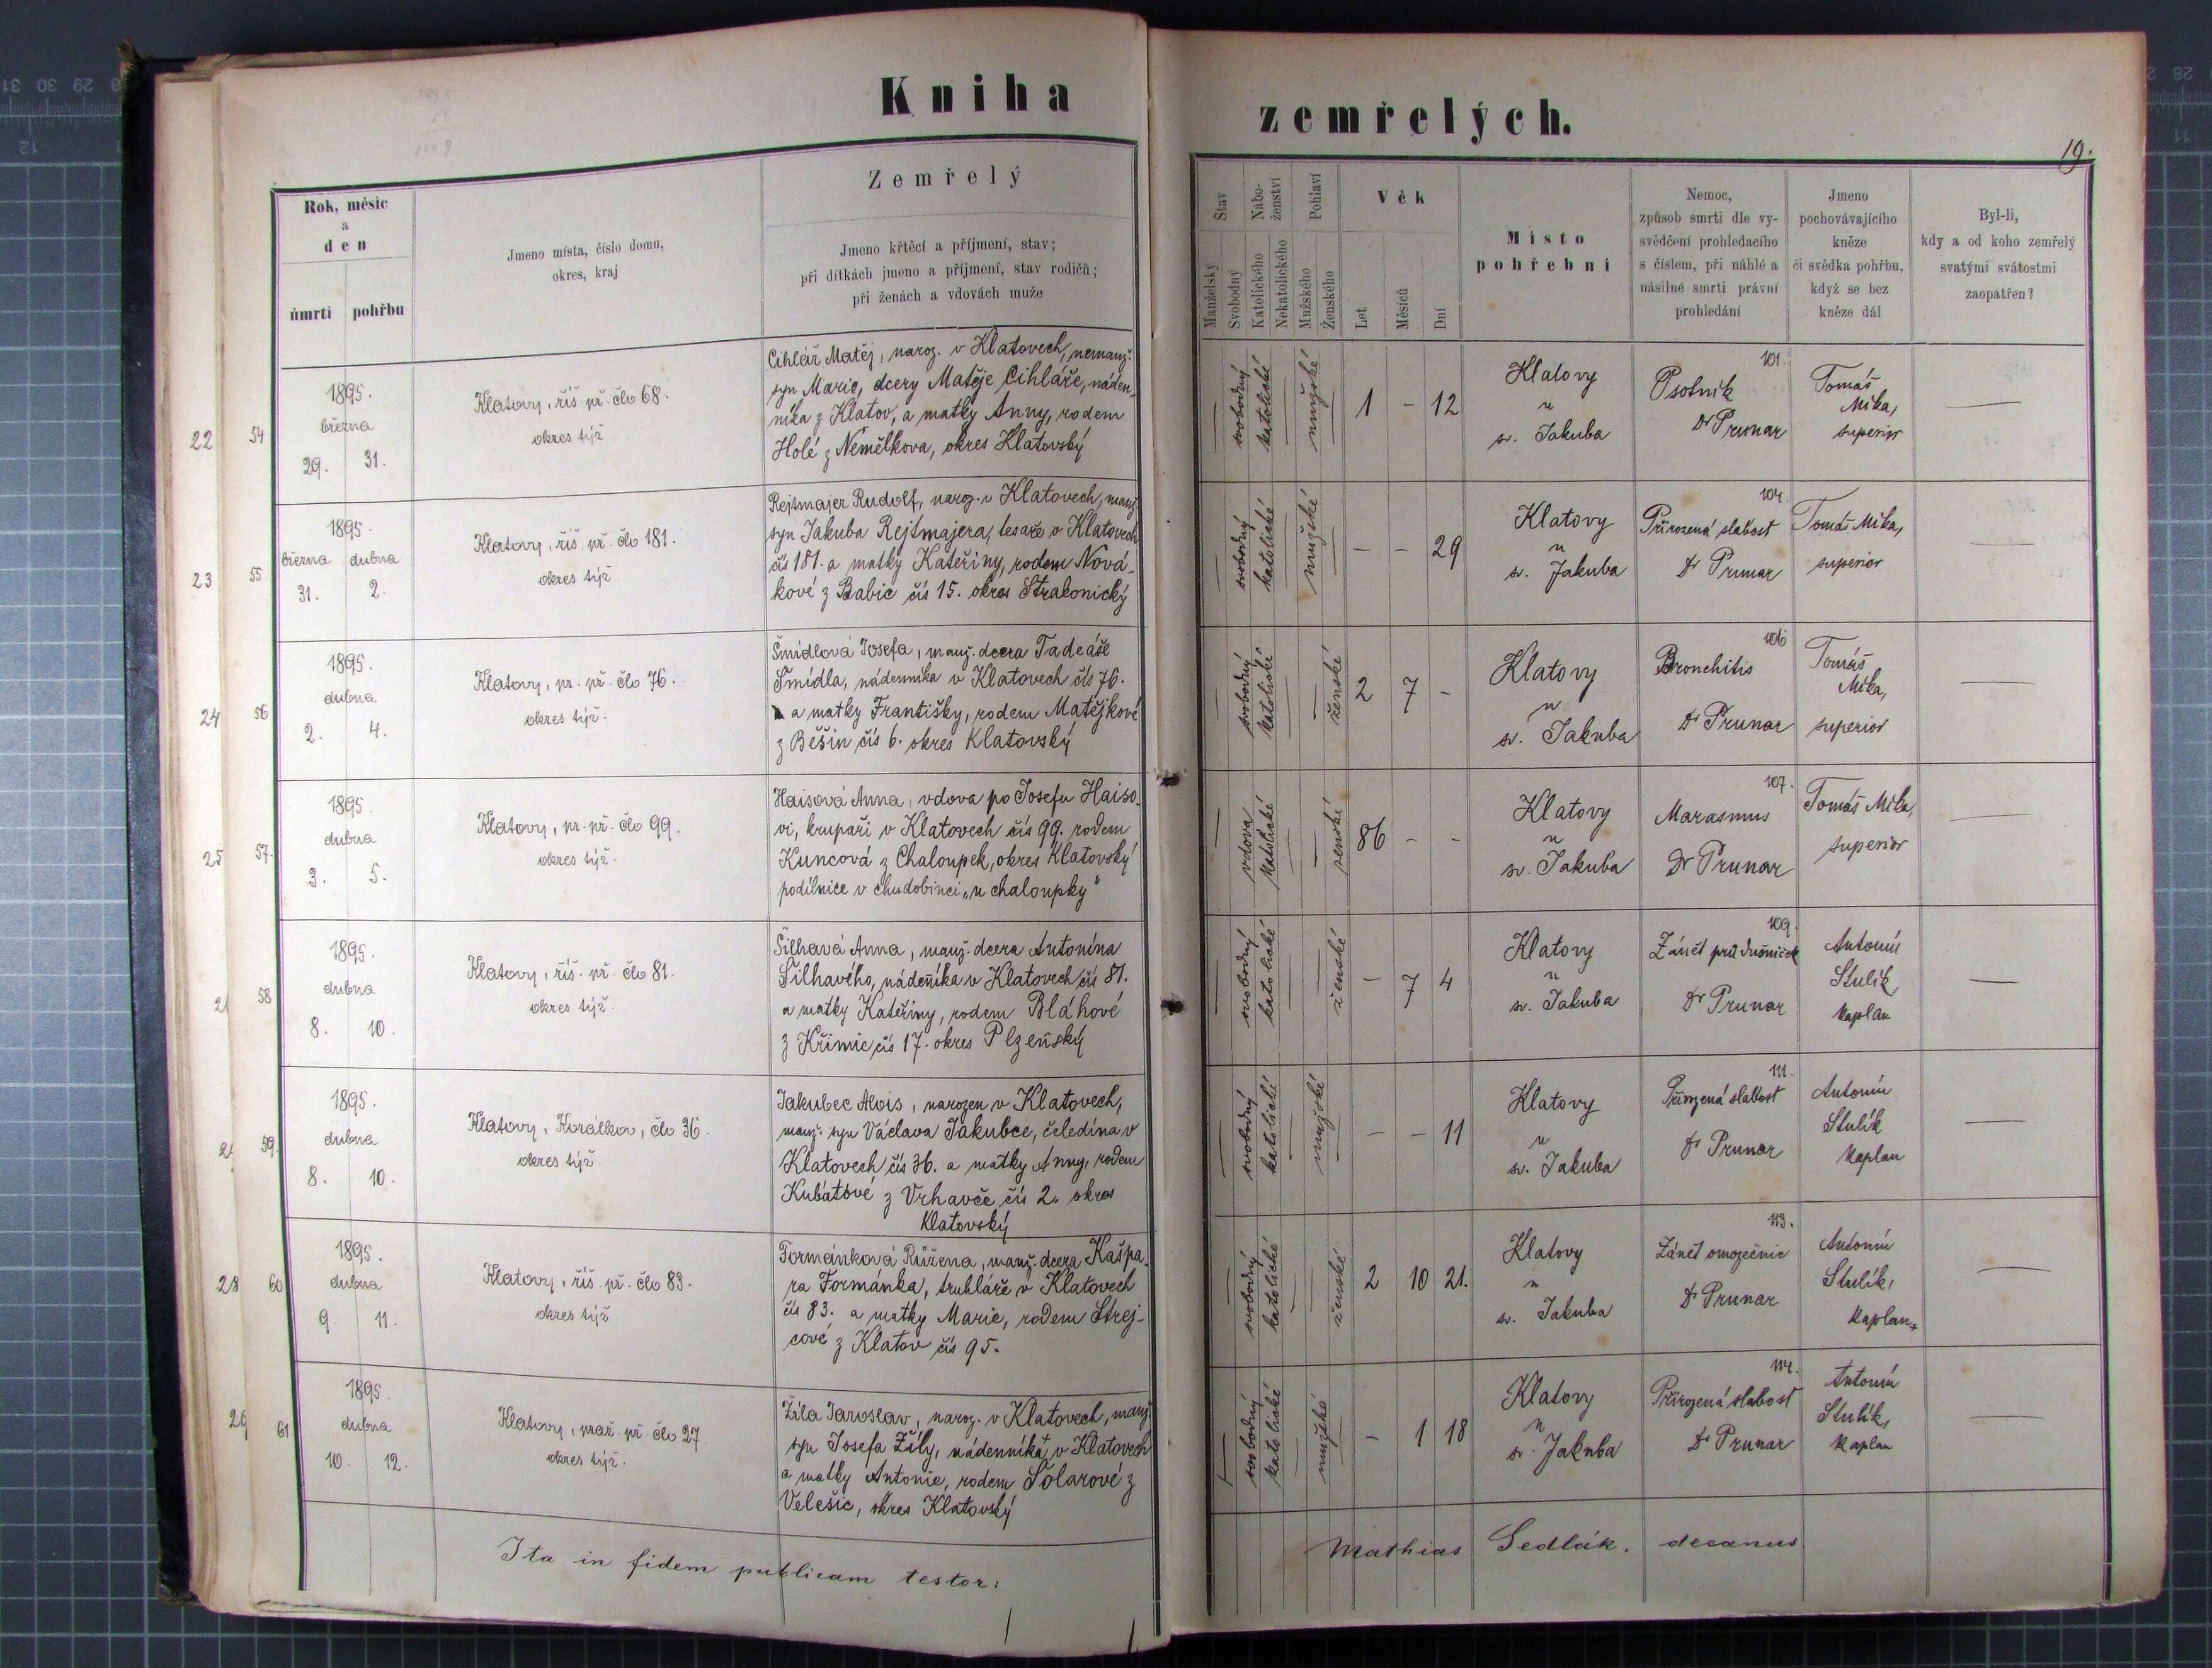 Kniha
zemřelých.
19.
Rok, měsíc
a
den
úmrtí pohřbu
Jmeno místa, číslo domu,
okres, kraj
Zemřelý
Jmeno křtěcí a příjmení, stav;
při dítkách jmeno a příjmení, stav rodičů;
při ženách a vdovách muže
Stav
Manželský
Svobodný
Nábo-
ženství
Katolického
Nekatolického
Pohlaví
Mužského
Ženského
Věk
Let
Měsíců
Dní
Místo
pohřební
Nemoc,
způsob smrti dle vy-
svědčení prohledacího
s číslem, při náhlé a
násilné smrti právní
prohledání
Jmeno
pochovávajícího
kněze
či svědka pohřbu,
když se bez
kněze dál
Byl-li,
kdy a od koho zemřelý
svatými svátostmi
zaopatřen?
22 54
1895.
března
29. 31.
Klatovy, říš. př. člo 68.
okres týž
Cihlář Matěj, naroz. v Klatovech, nemanž.
syn Marie, dcery Matěje Cihláře, náden-
níka z Klatov, a matky Anny, rodem
Holé z Němělkova, okres Klatovský
— svobodný katolické — mužské —
1 - 12
Klatovy
u
sv. Jakuba
101.
Psotník
Dr Prunar
Tomáš
Mika,
superior
—
23 55
1895.
března dubna
31. 2.
Klatovy, říš. př. člo 181.
okres týž
Rejtmajer Rudolf, naroz. v Klatovech, manž.
syn Jakuba Rejtmajera, tesaře v Klatovech
čís 181. a matky Kateřiny, rodem Nová-
kové z Babic čís 15. okres Strakonický
— svobodný katolické — mužské —
- - 29
Klatovy
u
sv. Jakuba
104.
Přirozená slabost
Dr Prunar
Tomáš Mika,
superior
—
24 56
1895.
dubna
2. 4.
Klatovy, pr. př. člo 76.
okres týž.
Šmídlová Josefa, manž. dcera Tadeáše
Šmídla, nádenníka v Klatovech čís 76.
a matky Františky, rodem Matějkové
z Běšin čís 6. okres Klatovský
— svobodný katolické — — ženské
2 7 -
Klatovy
u
sv. Jakuba
106
Bronchitis
Dr Prunar
Tomáš
Mika,
superior
—
25 57.
1895.
dubna
3. 5.
Klatovy, pr. př. člo 99.
okres týž.
Haisová Anna, vdova po Josefu Haiso-
vi, krupaři v Klatovech čís 99. rodem
Kuncová z Chaloupek, okres Klatovský
podílnice v chudobinci „u chaloupky“
— vdova katolické — — ženské
86 - -
Klatovy
u
sv. Jakuba
107.
Marasmus
Dr Prunar
Tomáš Mika,
superior
—
58
1895.
dubna
8. 10.
Klatovy, říš. př. člo 81.
okres týž.
Šilhavá Anna, manž. dcera Antonína
Šilhavého, nádeníka v Klatovech čís 81.
a matky Kateřiny, rodem Bláhové
z Křimic čís 17. okres Plzeňský
— svobodný katolické — — ženské
- 7 4
Klatovy
u
sv. Jakuba
109.
Zánět průdušniček
Dr Prunar
Antonín
Stulík,
kaplan
—
59.
1895.
dubna
8. 10.
Klatovy, Korálkov, člo 36.
okres týž.
Jakubec Alois, narozen v Klatovech,
manž. syn Václava Jakubce, čeledína v
Klatovech čís 36. a matky Anny, rodem
Kubátové z Vrhavče čís 2. okres
Klatovský
— svobodný katolické — mužské —
- - 11
Klatovy
u
sv. Jakuba
111.
Přirozená slabost
Dr Prunar
Antonín
Stulík
kaplan
—
28 60
1895.
dubna
9. 11.
Klatovy, říš. př. člo 83.
okres týž
Formánková Růžena, manž. dcera Kašpa-
ra Formánka, truhláře v Klatovech
čís 83. a matky Marie, rodem Strej-
cové z Klatov čís 95.
— svobodný katolické — — ženské
2 10 21.
Klatovy
u
sv. Jakuba
113.
Zánět omozečnic
Dr Prunar
Antonín
Stulík,
kaplan
—
61
1895.
dubna
10. 12.
Klatovy, praž. př. člo 27
okres týž.
Žíla Jaroslav, naroz. v Klatovech, manž.
syn Josefa Žíly, nádenníka v Klatovech
a matky Antonie, rodem Šolarové z
Velešic, okres Klatovský
— svobodný katolické — mužské —
- 1 18
Klatovy
u
sv. Jakuba
114.
Přirozená slabost
Dr Prunar
Antonín
Stulík,
kaplan
—
Ita in fidem publicam testor:
Mathias Sedlák. decanus.